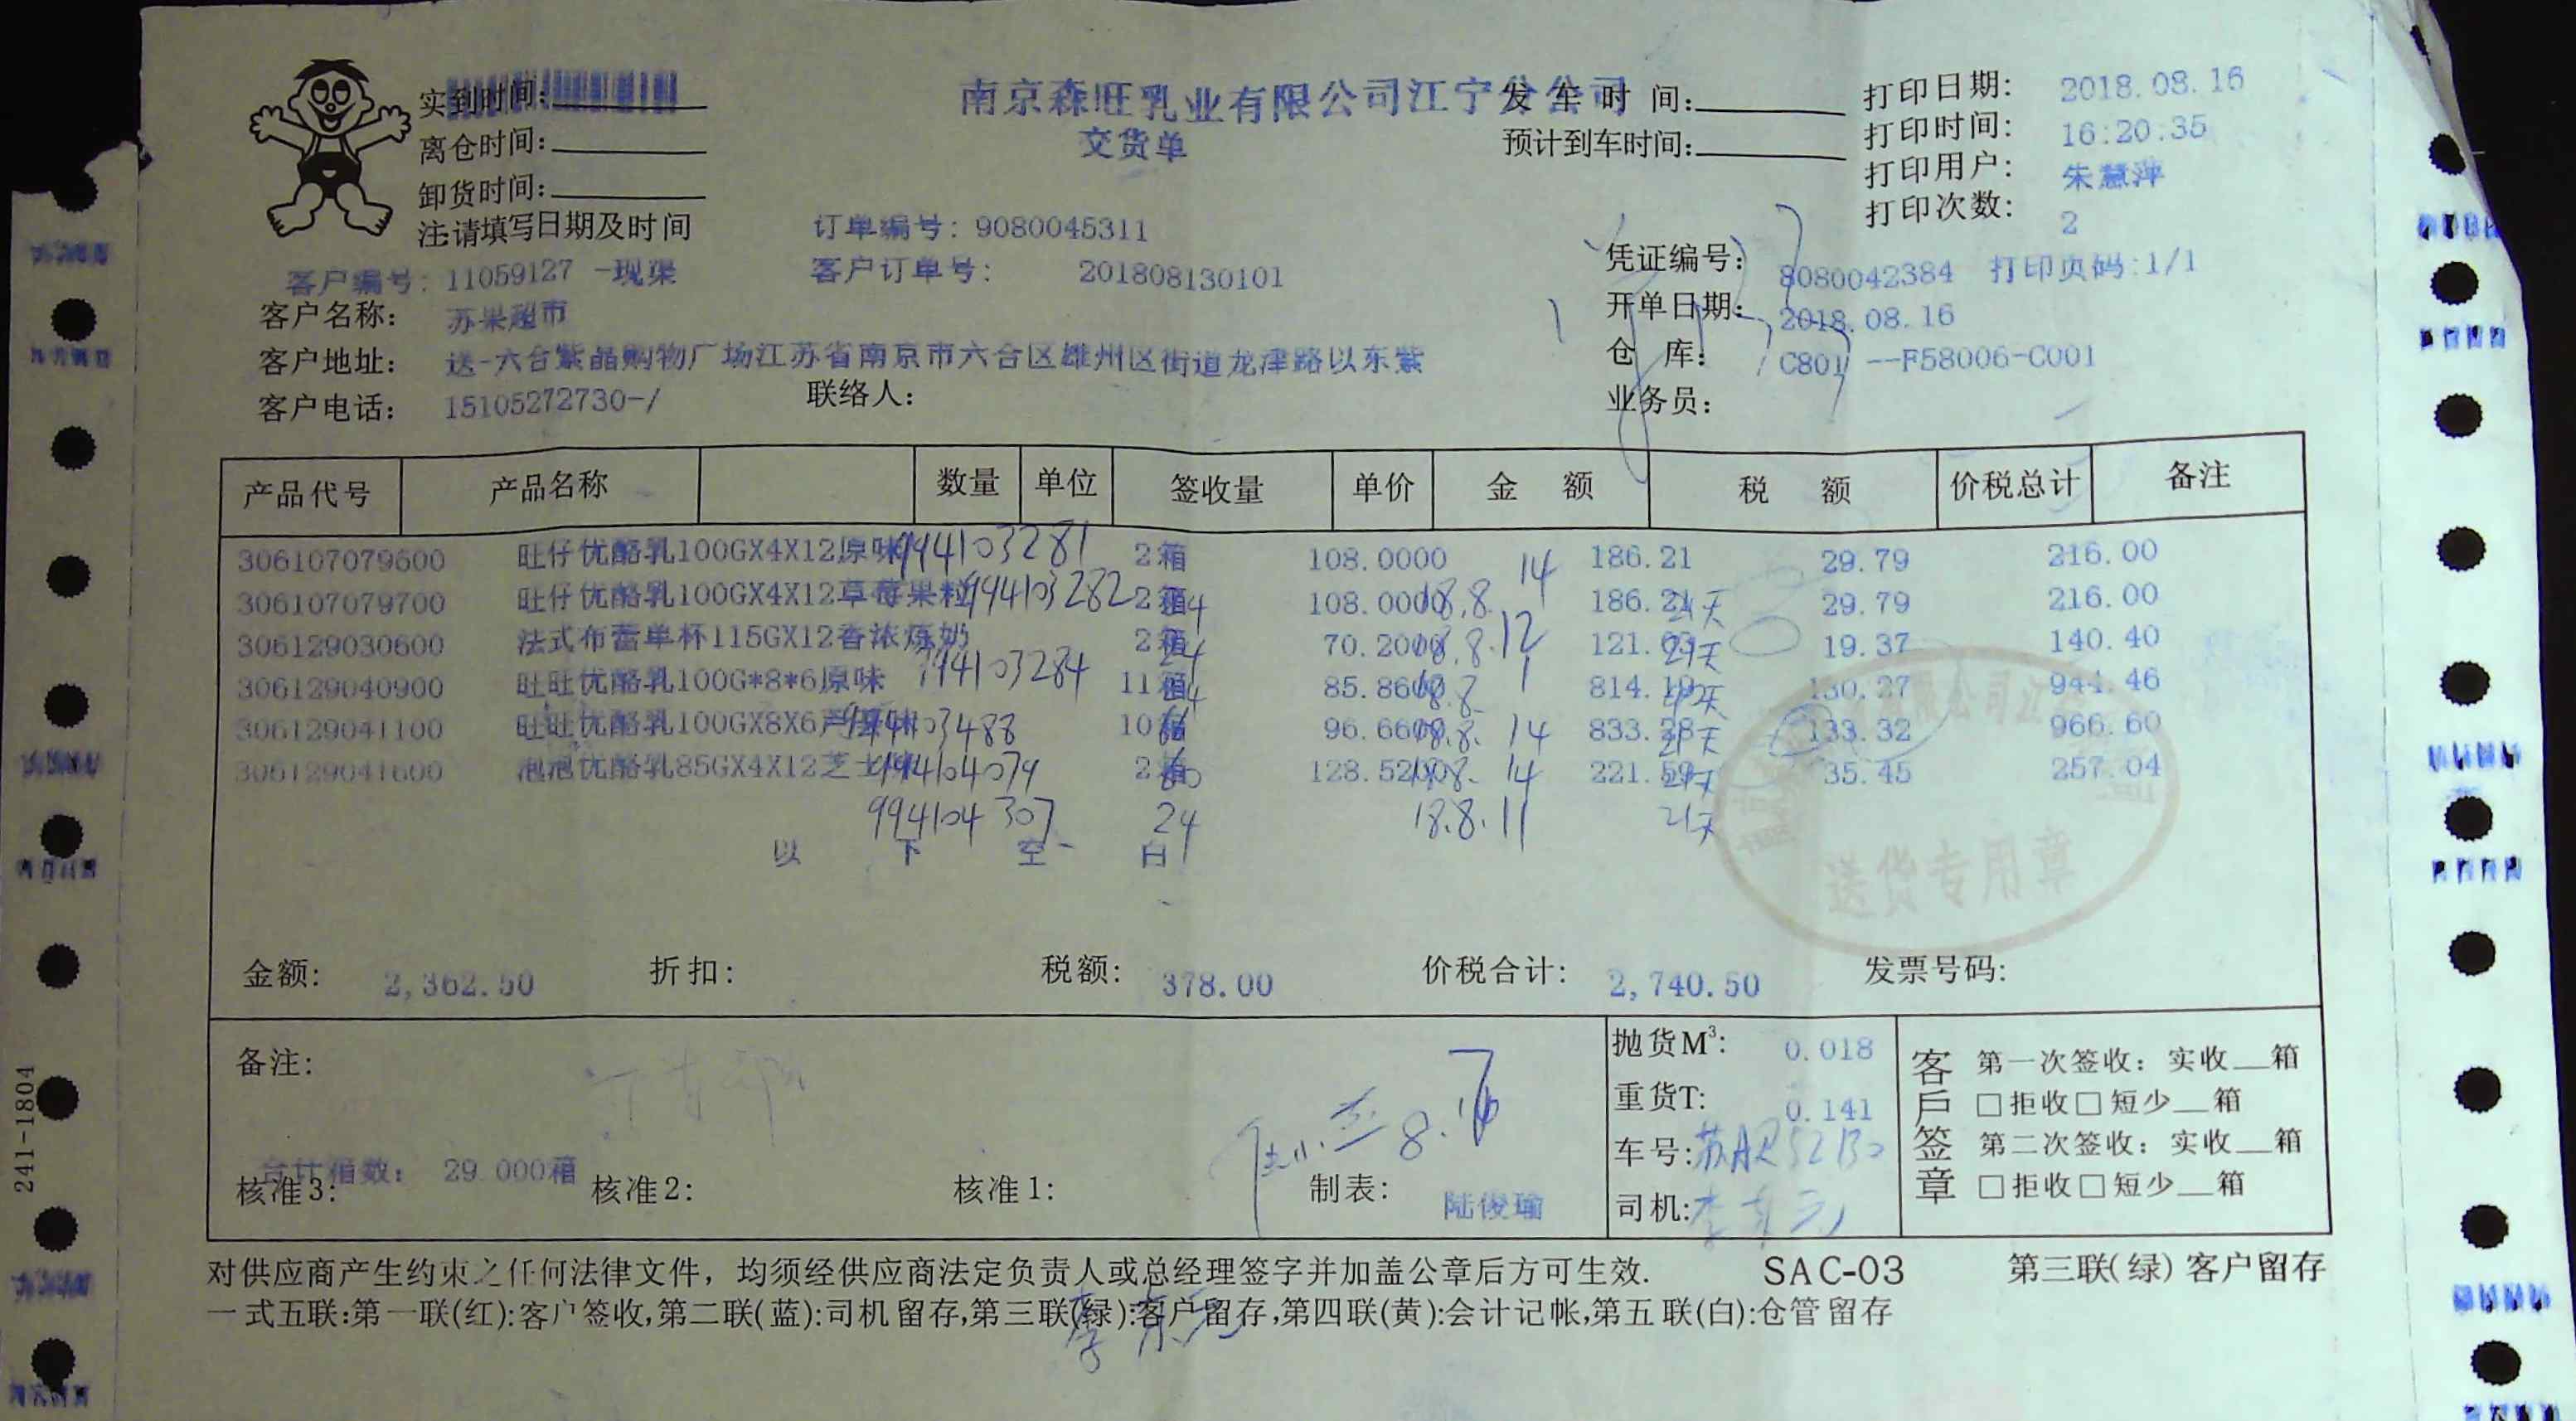 实到时间:
南京森旺乳业有限公司江宁分公司
发车时间:
打印日期: 2018.08.16
离仓时间:
交货单
预计到车时间:
打印时间: 16:20:35
卸货时间:
打印用户: 朱慧萍
注:请填写日期及时间
订单编号: 9080045311
打印次数: 2
客户编号: 11059127 -现渠
客户订单号: 201808130101
凭证编号: 8080042384 打印页码:1/1
客户名称: 苏果超市
开单日期: 2018.08.16
客户地址: 送-六合紫晶购物广场江苏省南京市六合区雄州区街道龙津路以东紫
仓 库: C801 --F58006-C001
客户电话: 15105272730-/
联络人:
业务员:
产品代号 产品名称 数量 单位 签收量 单价 金 额 税 额 价税总计 备注
306107079600 旺仔优酪乳100GX4X12原味 2箱 108.0000 186.21 29.79 216.00
994103281 14
306107079700 旺仔优酪乳100GX4X12草莓果粒 2箱 108.0000 186.21 29.79 216.00
994103282 24 18.8. 21天
306129030600 法式布蕾单杯115GX12香浓炼奶 2箱 70.2000 121.03 19.37 140.40
24 18.8.12 21天
306129040900 旺旺优酪乳100G*8*6原味 11箱 85.8600 814.19 130.27 944.46
994103284 18.8. 1
306129041100 旺旺优酪乳100GX8X6芦荟味 10箱 96.6600 833.28 133.32 966.60
994103488 66 18.8. 14 21天
306129041600 泡泡优酪乳85GX4X12芝士味 2箱 128.5200 221.59 35.45 257.04
994104079 60 18.8. 14 21天
994104307 24 18.8.11 21天
以 下 空 白
送货专用章
金额: 2,362.50 折扣: 税额: 378.00 价税合计: 2,740.50 发票号码:
备注:
抛货M³: 0.018
重货T: 0.141
8.16
车号:
合计箱数: 29.000箱
核准3: 核准2: 核准1: 制表: 陆俊瑜
司机:
客户签章
第一次签收: 实收__箱
□拒收□短少__箱
第二次签收: 实收__箱
□拒收□短少__箱
对供应商产生约束之任何法律文件，均须经供应商法定负责人或总经理签字并加盖公章后方可生效.
SAC-03
第三联(绿) 客户留存
一式五联:第一联(红):客户签收,第二联(蓝):司机留存,第三联(绿):客户留存,第四联(黄):会计记帐,第五联(白):仓管留存
241-1804